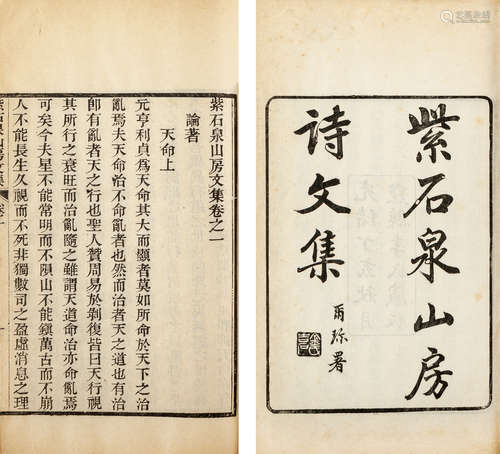 紫石泉山房
詩文集
署
紫石泉山房文集卷之一
論著
天命上
元亨利貞為天命其大而顯者莫如所命於天下之治
亂焉夫天命治不命亂者也然而治者天之道也有治
卽有亂者天之行也聖人贊周易於剝復皆曰天行視
其所行之衰旺而治亂隨之雖謂天道命治亦命亂焉
可矣今夫星不能常明而不隕山不能鎮萬古而不崩
人不能長生久視而不死非獨數司之盈虛消息之理